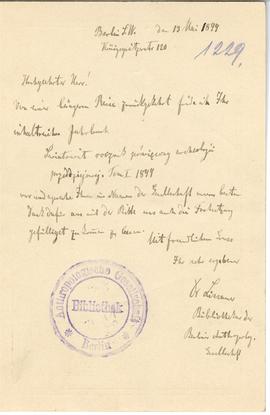 Berlin S.W. den 13 Mai 1899
Königgrätzerstr 120
1229.
Hochgeehrter Herr!
Von einer längeren Reise zurückgekehrt finde ich Ihr
inhaltreiches Jahrbuch
Światowit rocznik poświęcony archeologii
przeddziejowej. Tom I 1899
vor und spreche Ihnen im Namen der Gesellschaft unsern besten
Dank dafür aus mit der Bitte uns auch die Fortsetzung
gefälligst zukommen zu lassen.
Mit freundlichem Gruss
Ihr sehr ergebener
Dr Lissauer
Bibliothekar der
Berliner Anthropolog.
Gesellschaft
Anthropologische Gesellschaft
Bibliothek
Berlin